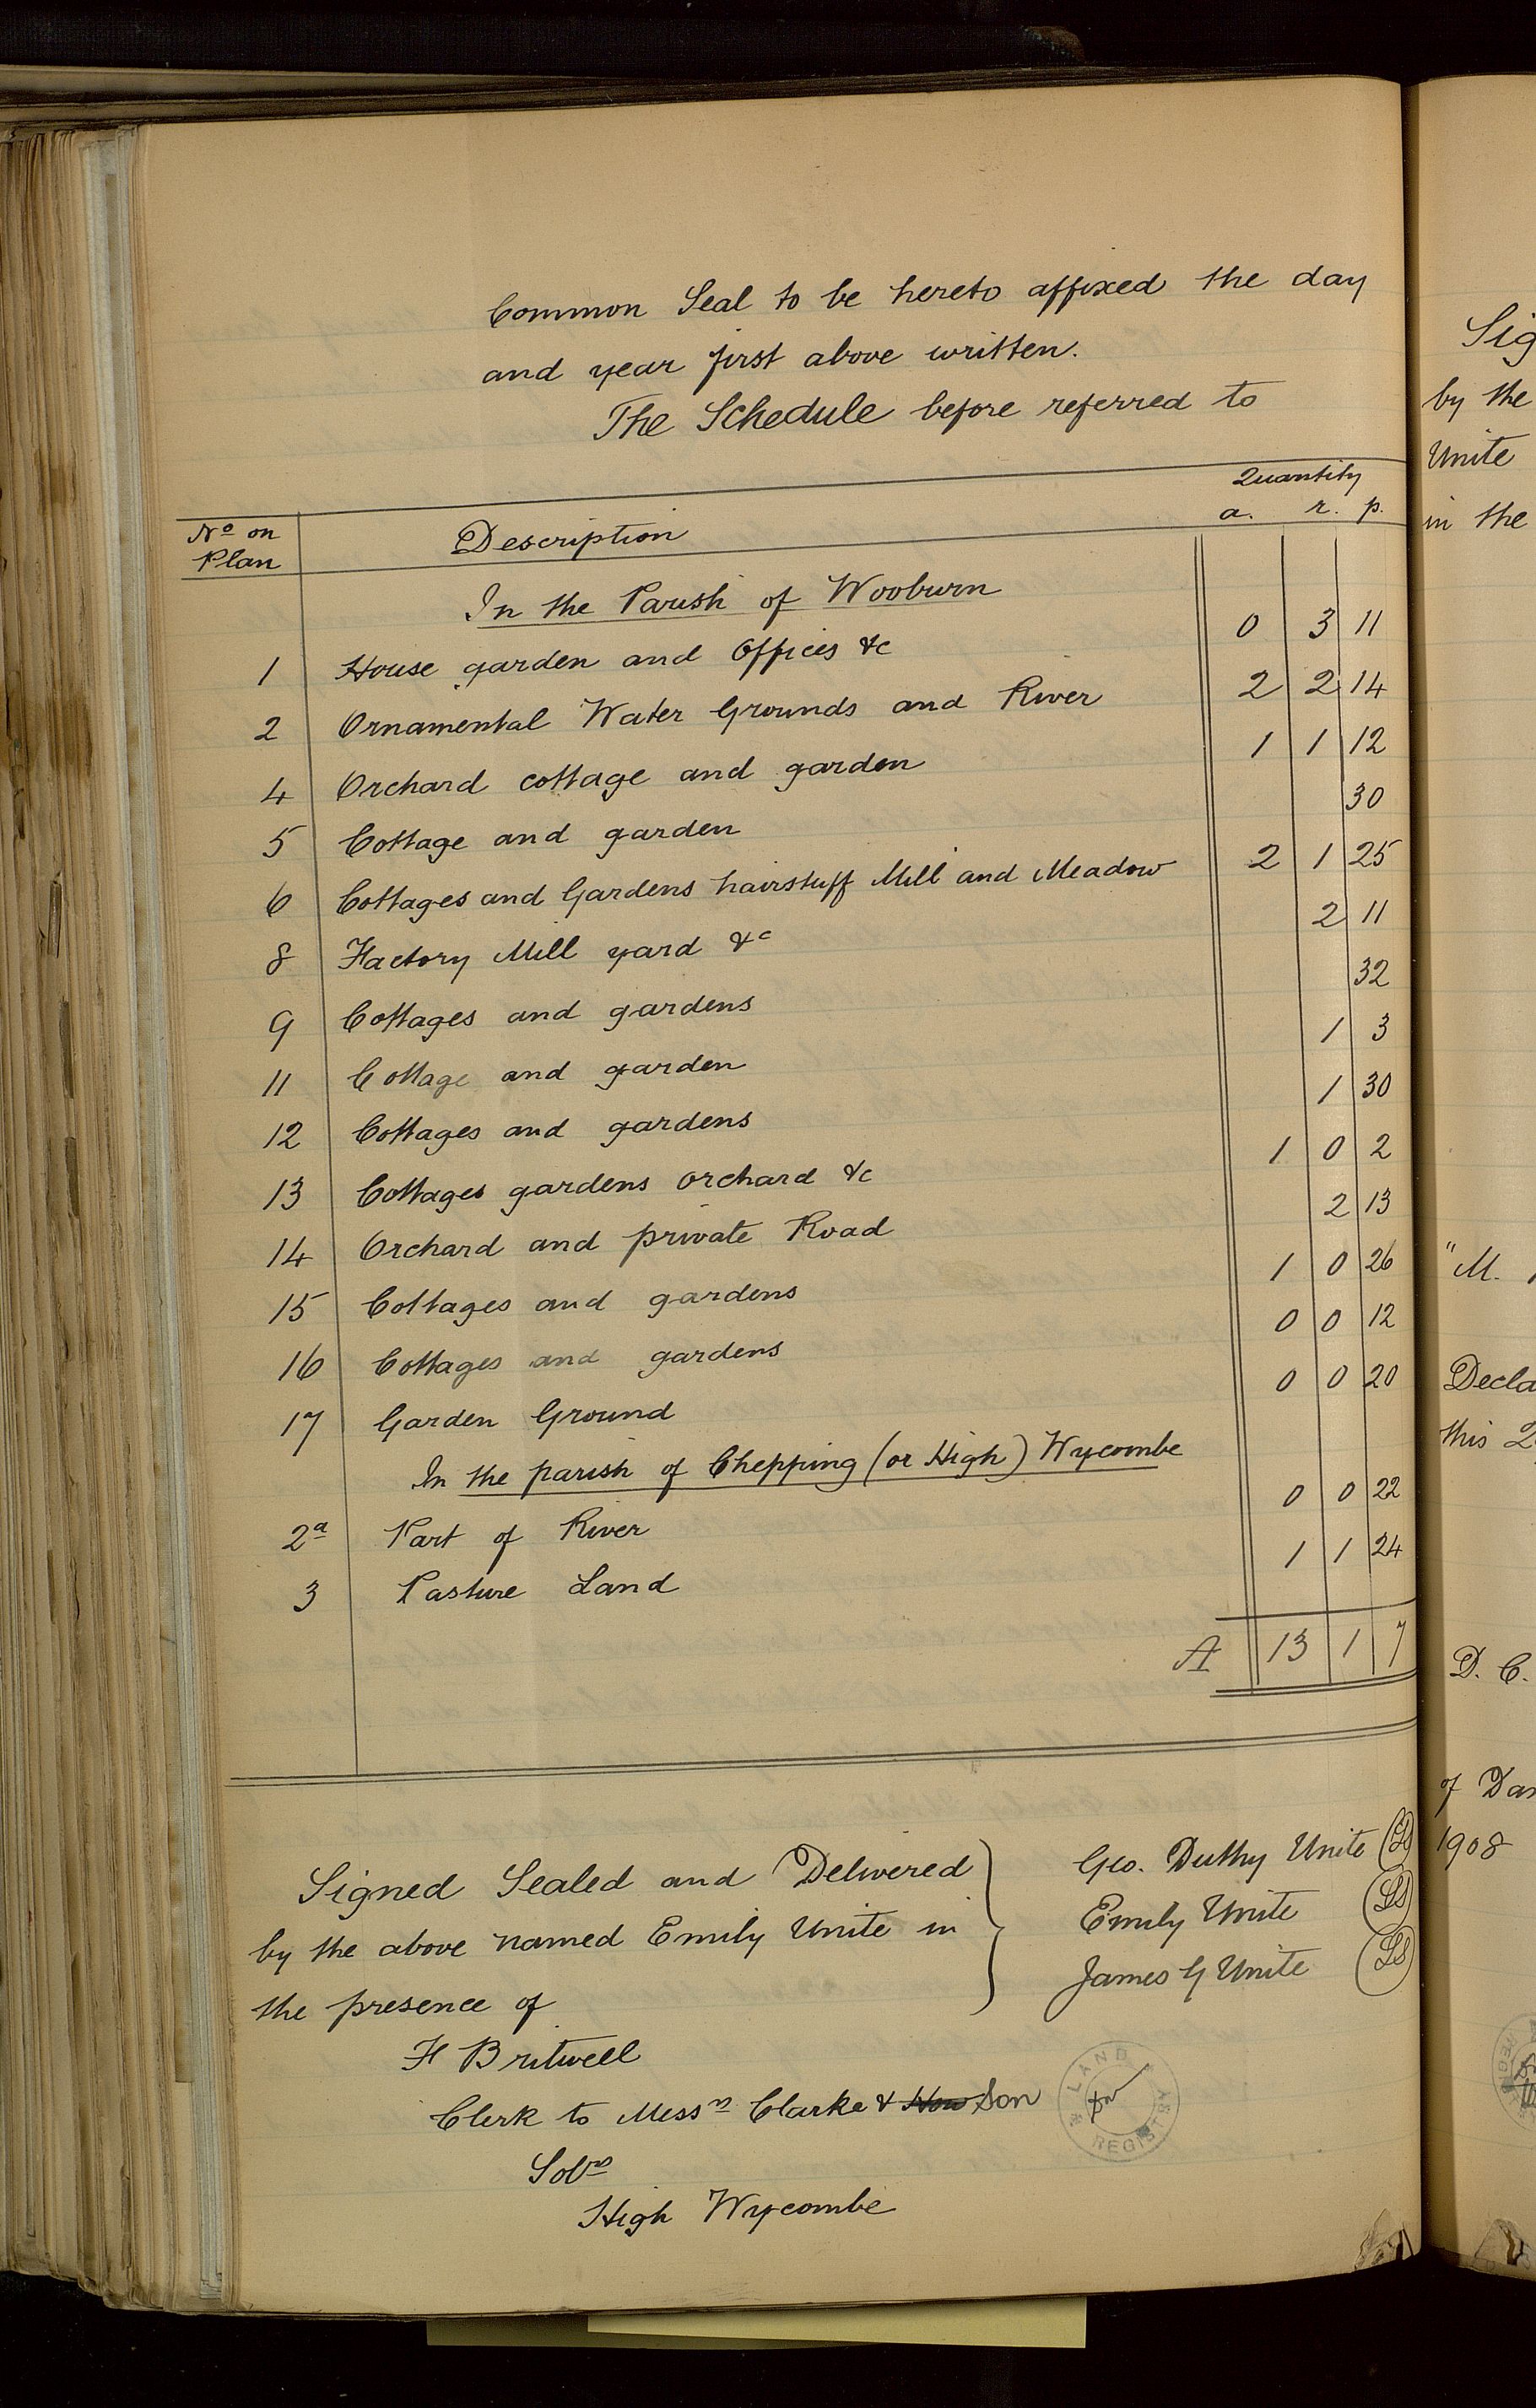 Common Seal to be hereto affixed the day
and year first above written.
The Schedule before referred to
No on Plan Description Quantity
a. r. p.
In the Parish of Wooburn
1 House garden and Offices &c 0 3 11
2 Ornamental Water Grounds and River 2 2 14
4 Orchard cottage and garden 1 1 12
5 Cottage and garden 30
6 Cottages and Gardens hairstuff Mill and Meadow 2 1 25
8 Factory Mill yard &c 2 11
9 Cottages and gardens 32
11 Cottage and garden 1 3
12 Cottages and gardens 1 30
13 Cottages gardens orchard &c 1 0 2
14 Orchard and private Road 2 13
15 Cottages and gardens 1 0 26
16 Cottages and gardens 0 0 12
17 Garden Ground 0 0 20
In the parish of Chepping (or High) Wycombe
2a Part of River 0 0 22
3 Pasture Land 1 1 24
A 13 1 7
Signed Sealed and Delivered
by the above named Emily Unite in
the presence of
Geo. Duthy Unite (LS)
Emily Unite (LS)
James G Unite (LS)
H Britwell
Clerk to Messrs Clarke & How Son
Solrs
High Wycombe
LAND REGISTRY
Sig
by the
Unite
in the
"M.
Decla
this
D. C.
of Dar
1908